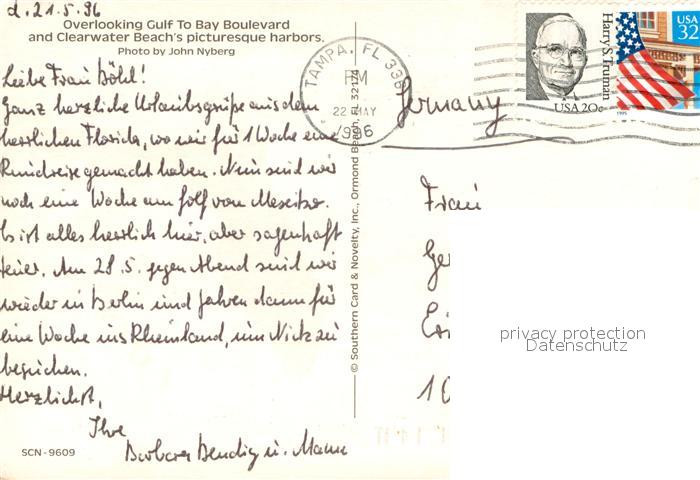 d. 21.5.96
Overlooking Gulf To Bay Boulevard
and Clearwater Beach's picturesque harbors.
Photo by John Nyberg
Liebe Frau Böhl!
Ganz herzliche Urlaubsgrüße aus dem
herrlichen Florida, wo wir für 1 Woche eine
Rundreise gemacht haben. Nun sind wir
noch eine Woche am Golf von Mexiko.
Es ist alles herrlich hier, aber sagenhaft
teuer. Am 28.5. gegen Abend sind wir
wieder in Berlin und fahren dann für
eine Woche ins Rheinland, um Nick zu
besuchen.
Herzlichst,
Ihre
Barbara u. Mann
SCN-9609
© Southern Card & Novelty, Inc., Ormond Beach, FL 32174
TAMPA, FL 336
PM
22 MAY
1996
Harry S. Truman
USA 20c
USA
32
1995
Germany
Frau
Ge
10
privacy protection
Datenschutz